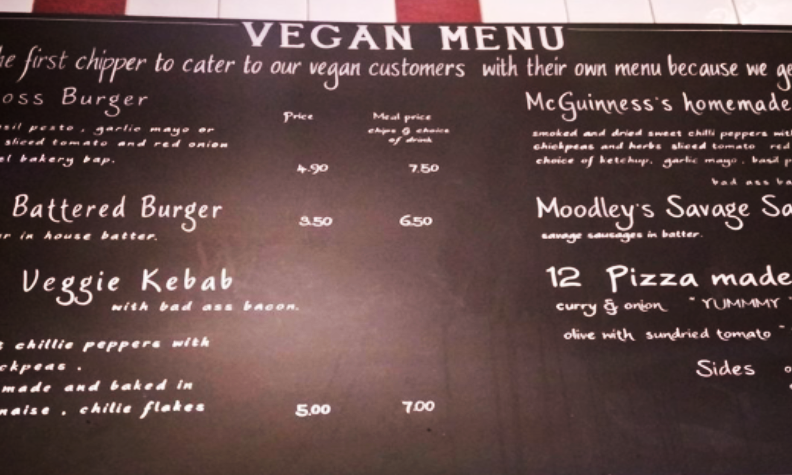 VEGAN MENU
he first chipper to cater to our vegan customers with their own menu because we ge
oss Burger
sil pesto , garlic mayo or
sliced tomato and red onion
el bakery bap.
Price
Meal price
chips & choice
of drink
4.90 7.50
Battered Burger
r in house batter.
3.50 6.50
Veggie Kebab
with bad ass bacon.
s chillie peppers with
ckpeas .
made and baked in
naise , chilie flakes
5.00 7.00
McGuinness's homemade
smoked and dried sweet chilli peppers wit
chickpeas and herbs sliced tomato red
choice of ketchup, garlic mayo , basil p
bad ass ba
Moodley's Savage Sa
savage sausages in batter.
12 Pizza made
curry & onion " YUMMMY
olive with sundried tomato "
Sides